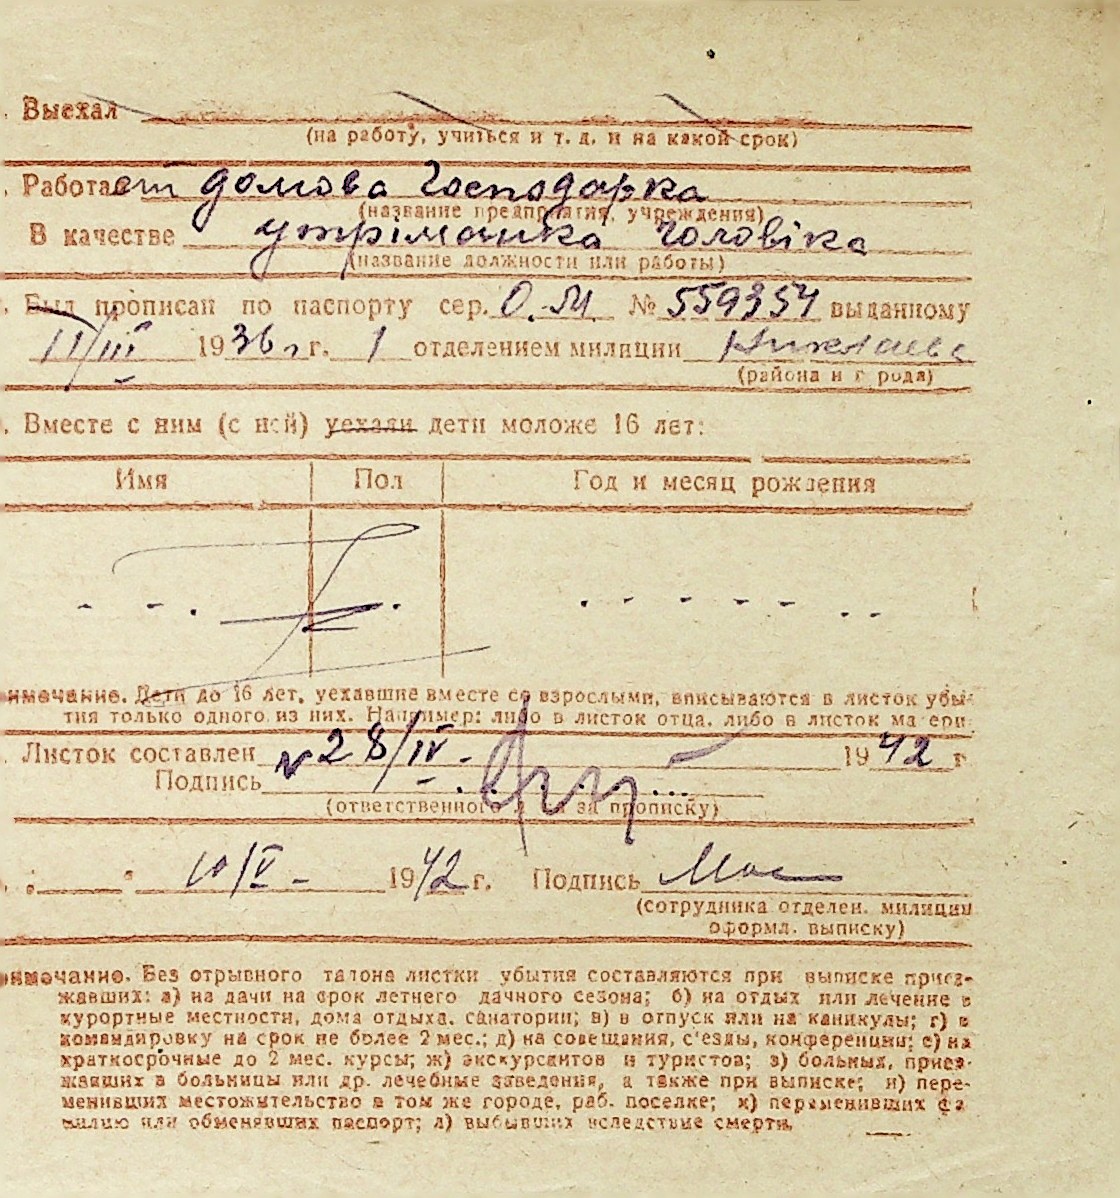 . Выехал
(на работу, учиться и т. д. и на какой срок)
. Работает домова господарка
(название предприятия, учреждения)
В качестве утріманка чоловіка
(название должности или работы)
. Был прописан по паспорту сер. О.М. № 559354 выданному
11/III 1936 г. 1 отделением милиции Николаева
(района и города)
. Вместе с ним (с ней) уехали дети моложе 16 лет:
Имя Пол Год и месяц рождения
имечание. Дети до 16 лет, уехавшие вместе со взрослыми, вписываются в листок убы-
тия только одного из них. Например: либо в листок отца, либо в листок матери
. Листок составлен 28/IV - 1942 г
Подпись
(ответственного за прописку)
. " " 10/V - 1942 г. Подпись
(сотрудника отделен. милиции
оформл. выписку)
имечание. Без отрывного талона листки убытия составляются при выписке приез-
жавших: а) на дачи на срок летнего дачного сезона; б) на отдых или лечение в
курортные местности, дома отдыха, санатории; в) в отпуск или на каникулы; г) в
командировку на срок не более 2 мес.; д) на совещания, с'езды, конференции; е) на
краткосрочные до 2 мес. курсы; ж) экскурсантов и туристов; з) больных, приез-
жавших в больницы или др. лечебные заведения, а также при выписке; и) пере-
менивших местожительство в том же городе, раб. поселке; к) переменивших фа
милию или обменявших паспорт; л) выбывших вследствие смерти.